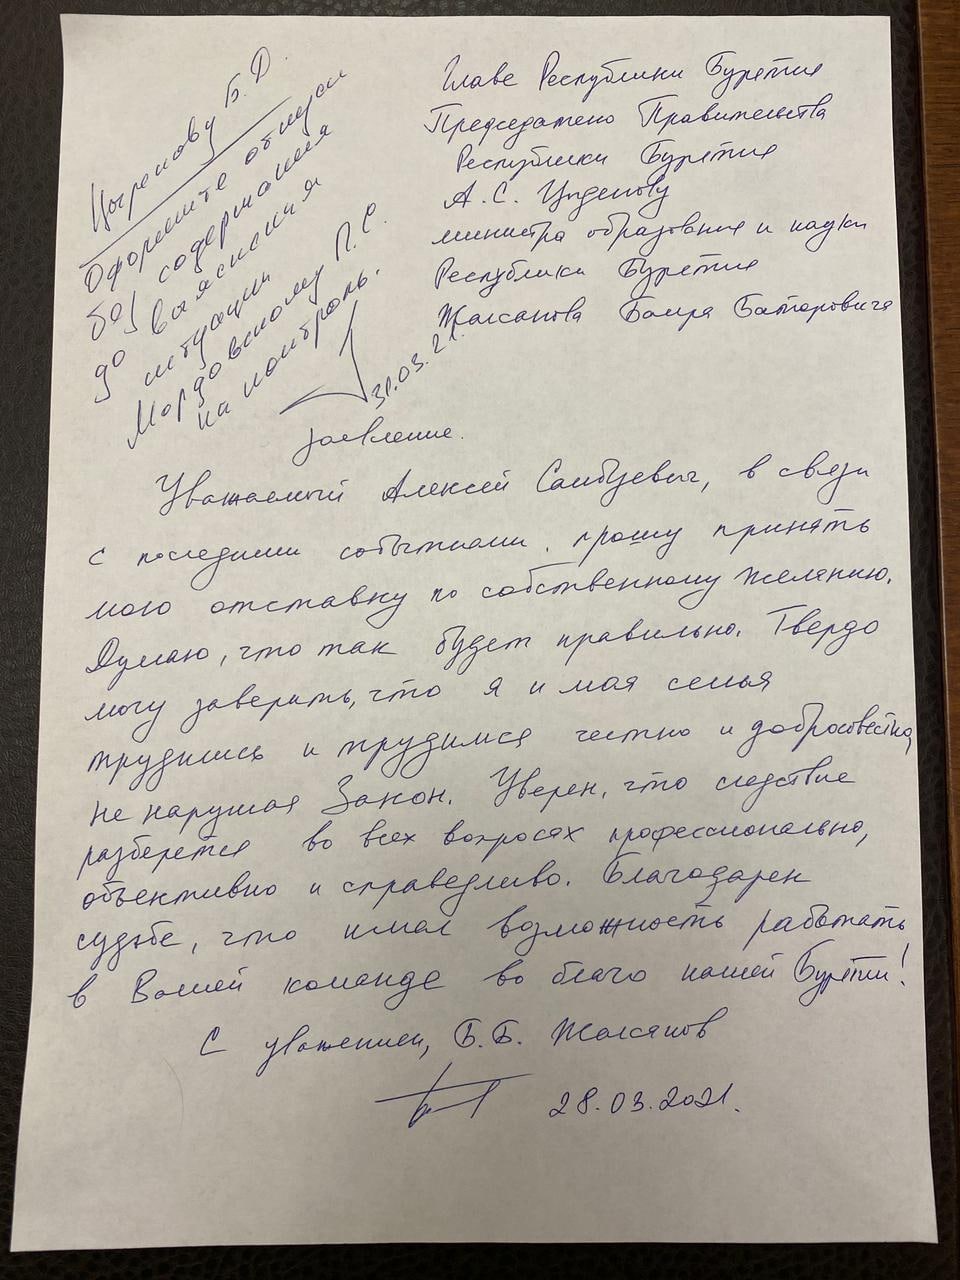 Цыренову Б.Д.
Оформите отпуск
без содержания
до выяснения
ситуации
Мордовскому П.С.
на контроль.
31.03.21.
Главе Республики Бурятия
Председателю Правительства
Республики Бурятия
А.С. Цыденову
министра образования и науки
Республики Бурятия
Жалсанова Баира Баторовича
заявление.
Уважаемый Алексей Самбуевич, в связи
с последними событиями, прошу принять
мою отставку по собственному желанию.
Думаю, что так будет правильно. Твердо
могу заверить, что я и моя семья
трудились и трудимся честно и добросовестно,
не нарушая Закон. Уверен, что следствие
разберется во всех вопросах профессионально,
объективно и справедливо. Благодарен
судьбе, что имел возможность работать
в Вашей команде во благо нашей Бурятии!
С уважением, Б.Б. Жалсанов
28.03.2021.